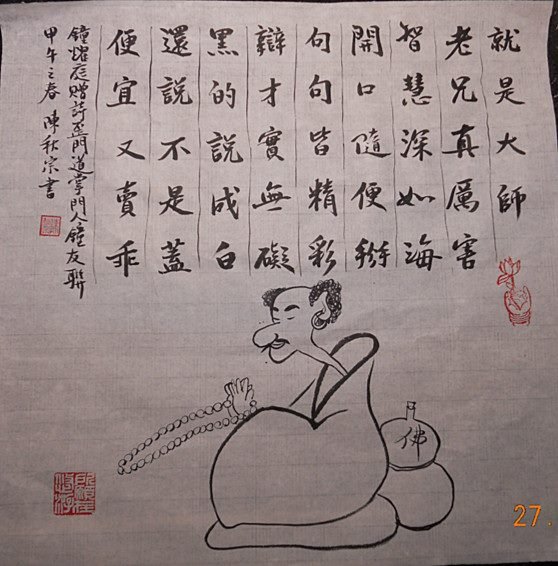 就是大師
老兄真厲害
智慧深如海
開口隨便掰
句句皆精彩
辯才實無礙
黑的說成白
還說不是蓋
便宜又賣乖
鐘燿庭贈詩歪門道掌門人鐘友聯
甲午之春 陳秋宗書
佛
27.